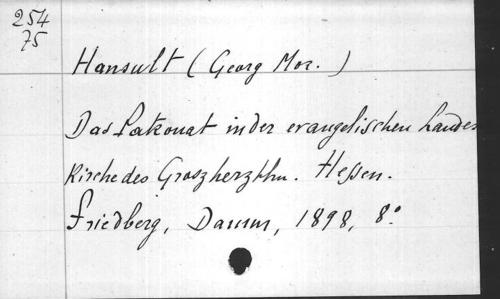 254
75
Hansult (Georg Mor. )
Das Patronat in der evangelischen Landes
Kirche des Groszherzthu. Hessen.
Friedberg, Damm, 1898, 8º